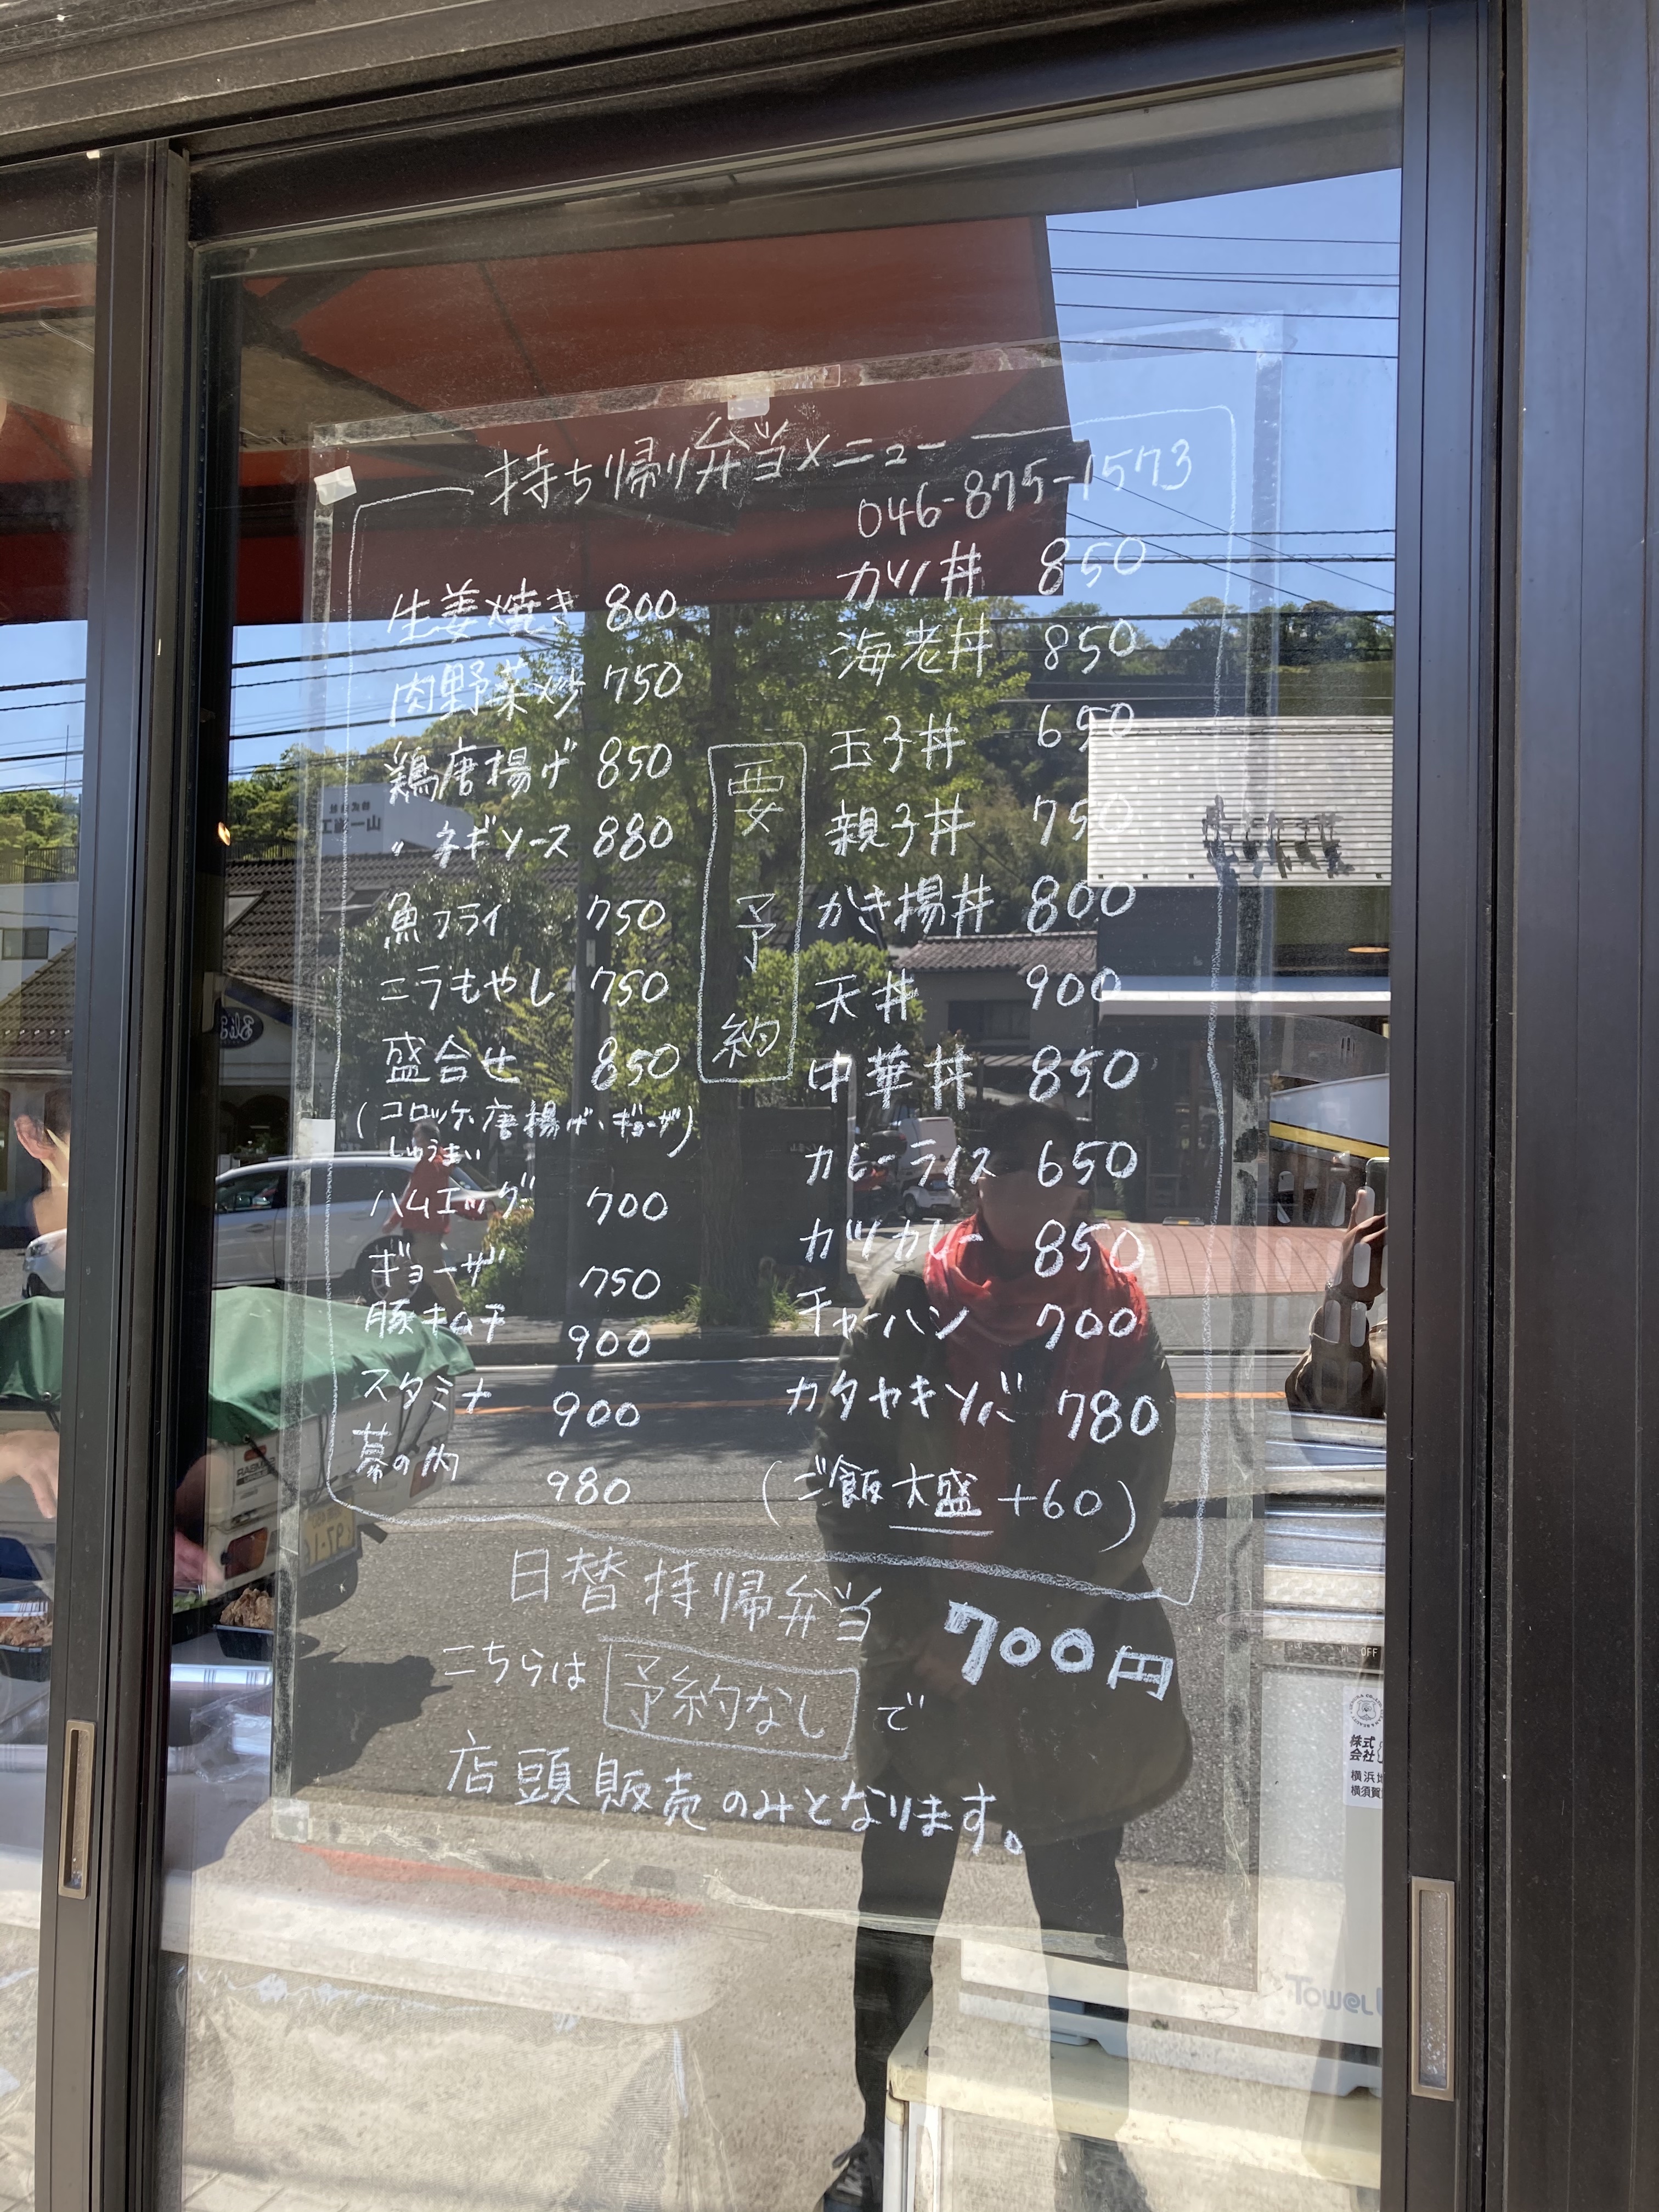 持ち帰り弁当メニュー
046-875-1573
生姜焼き 800
肉野菜炒 750
鶏唐揚げ 850
〃 ネギソース 880
魚フライ 750
ニラもやし 750
盛合せ 850
(コロッケ、唐揚げ、ギョーザ)
しゅうまい
ハムエッグ 700
ギョーザ 750
豚キムチ 900
スタミナ 900
幕の内 980
要予約
カツ丼 850
海老丼 850
玉子丼 650
親子丼 750
かき揚丼 800
天丼 900
中華丼 850
カレーライス 650
カツカレー 850
チャーハン 700
カタヤキソバ 780
(ご飯大盛 +60)
日替持帰弁当 700円
こちらは 予約なし で
店頭販売のみとなります。
OFF
株式
会社
横浜
横須賀
TOWEL